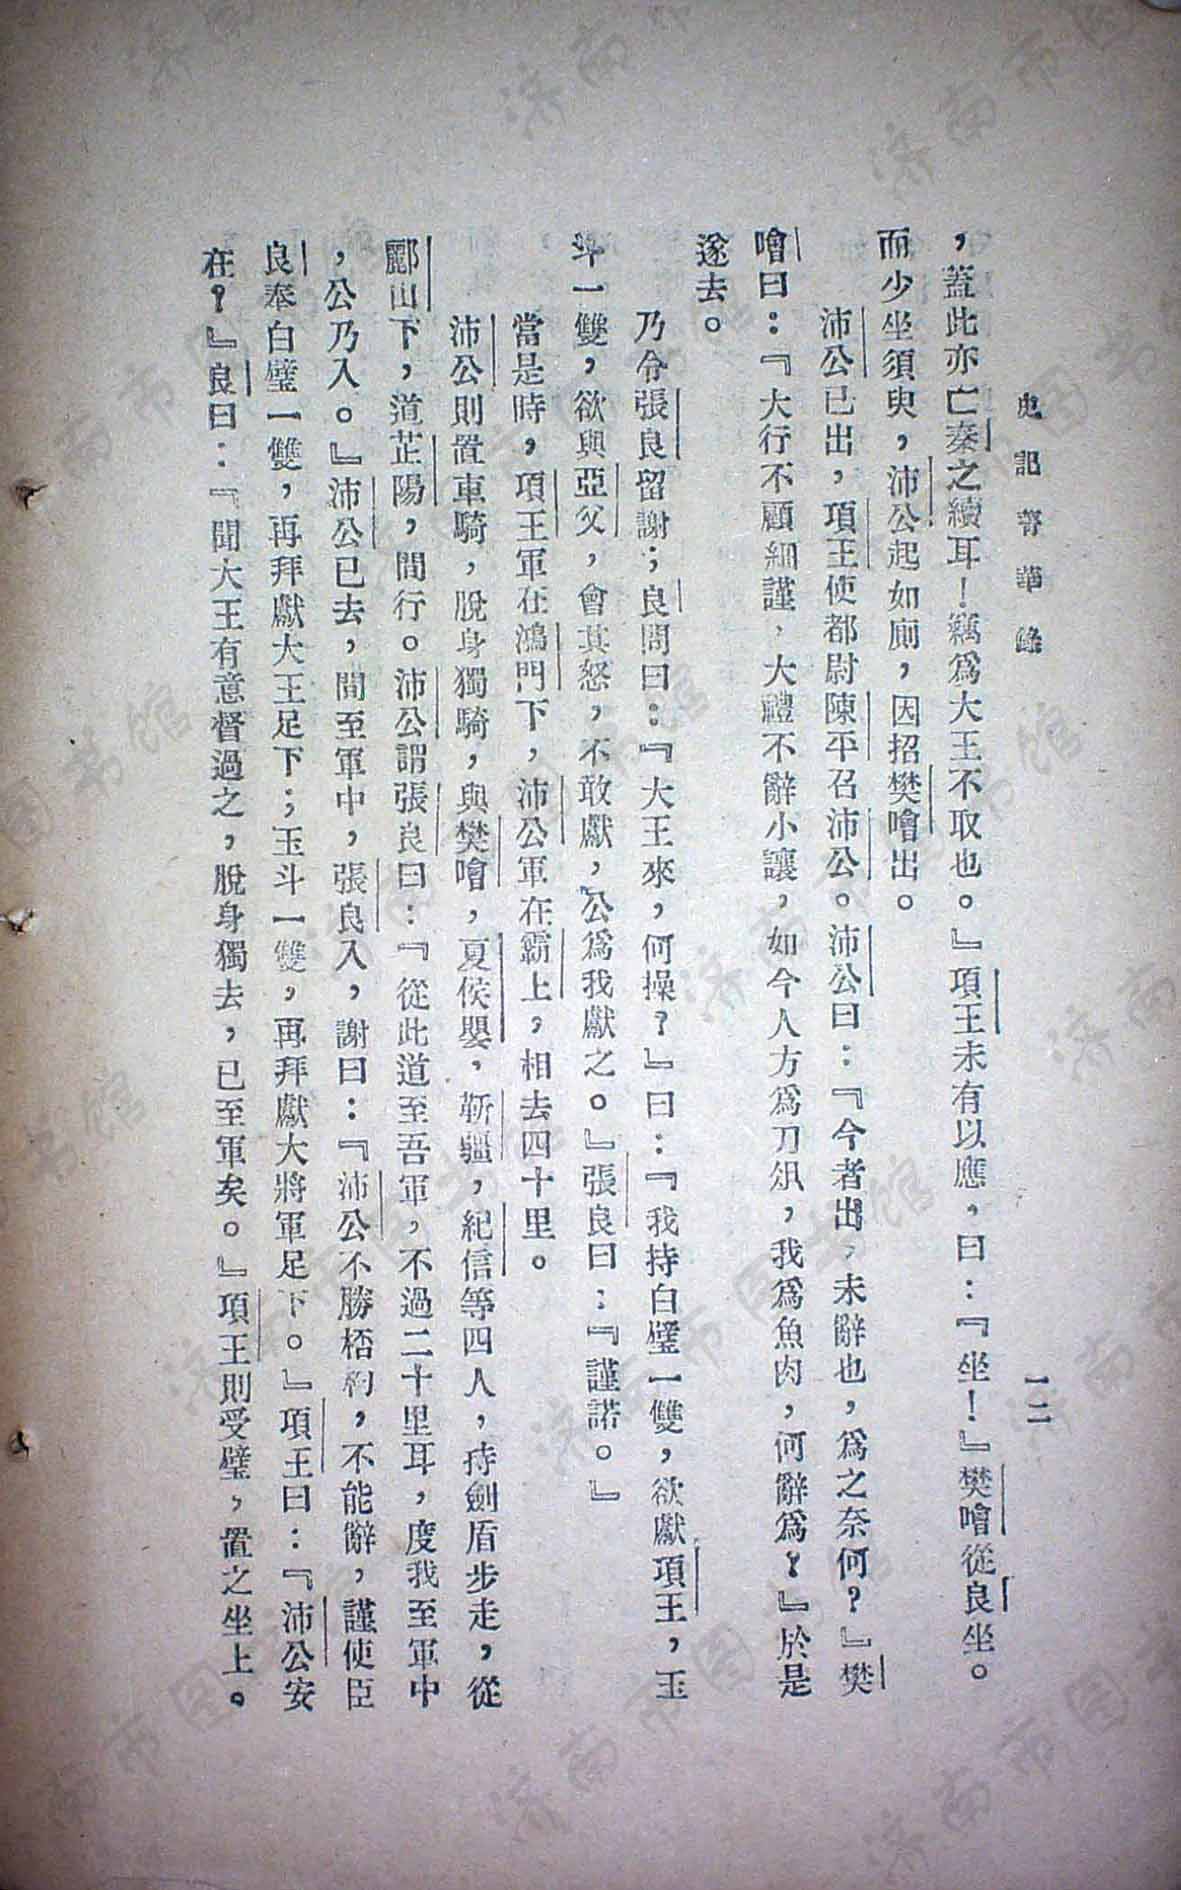 史記菁華錄
一二
，蓋此亦亡秦之續耳！竊爲大王不取也。』項王未有以應，曰：『坐！』樊噲從良坐。
而少坐須臾，沛公起如廁，因招樊噲出。
沛公已出，項王使都尉陳平召沛公。沛公曰：『今者出，未辭也，爲之奈何？』樊
噲曰：『大行不顧細謹，大禮不辭小讓，如今人方爲刀俎，我爲魚肉，何辭爲？』於是
遂去。
乃令張良留謝；良問曰：『大王來，何操？』曰：『我持白璧一雙，欲獻項王，玉
斗一雙，欲與亞父，會其怒，不敢獻，公爲我獻之。』張良曰：『謹諾。』
當是時，項王軍在鴻門下，沛公軍在霸上，相去四十里。
沛公則置車騎，脫身獨騎，與樊噲，夏侯嬰，靳疆，紀信等四人，持劍盾步走，從
酈山下，道芷陽，間行。沛公謂張良曰：『從此道至吾軍，不過二十里耳，度我至軍中
，公乃入。』沛公已去，間至軍中，張良入，謝曰：『沛公不勝桮杓，不能辭，謹使臣
良奉白璧一雙，再拜獻大王足下；玉斗一雙，再拜獻大將軍足下。』項王曰：『沛公安
在？』良曰：『聞大王有意督過之，脫身獨去，已至軍矣。』項王則受璧，置之坐上。
济南市图书馆